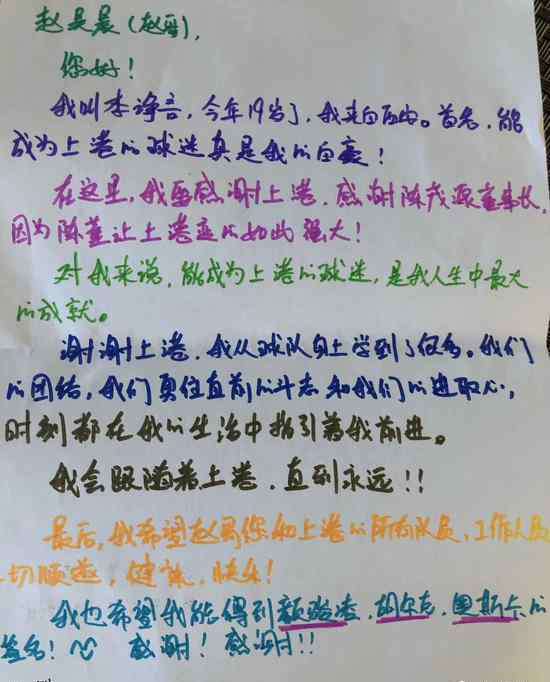 赵昊晨(赵哥),
您好!
我叫李诤言,今年19岁了,我来自西安。首先,能
成为上港的球迷真是我的自豪!
在这里,我要感谢上港,感谢陈戌源董事长,
因为陈董让上港变的如此强大!
对我来说,能成为上港的球迷,是我人生中最大
的成就。
谢谢上港,我从球队身上学到了很多。我们
的团结,我们勇往直前的斗志和我们的进取心,
时刻都在我的生活中指引着我前进。
我会跟随着上港,直到永远!!
最后,我希望赵哥您和上港的所有队员,工作人员
一切顺遂,健康,快乐!
我也希望我能得到颜骏凌,胡尔克,奥斯卡的
签名! 感谢!感谢!!